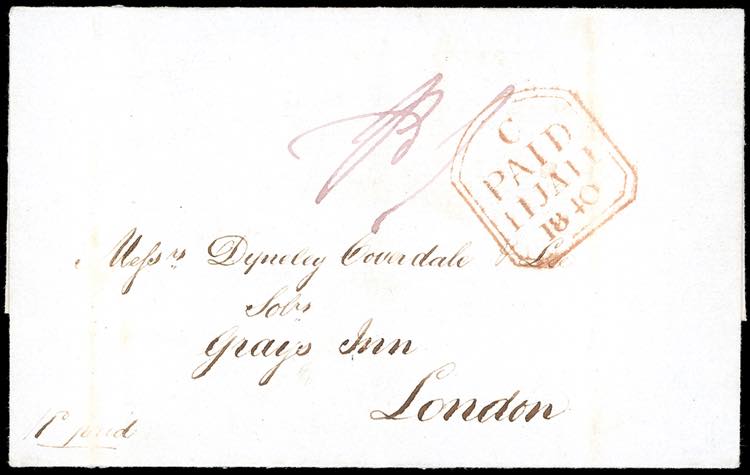 C
PAID
11 JA 11
1840
Messrs Dyneley Coverdale & Lee
Solrs
Grays Inn
London
paid